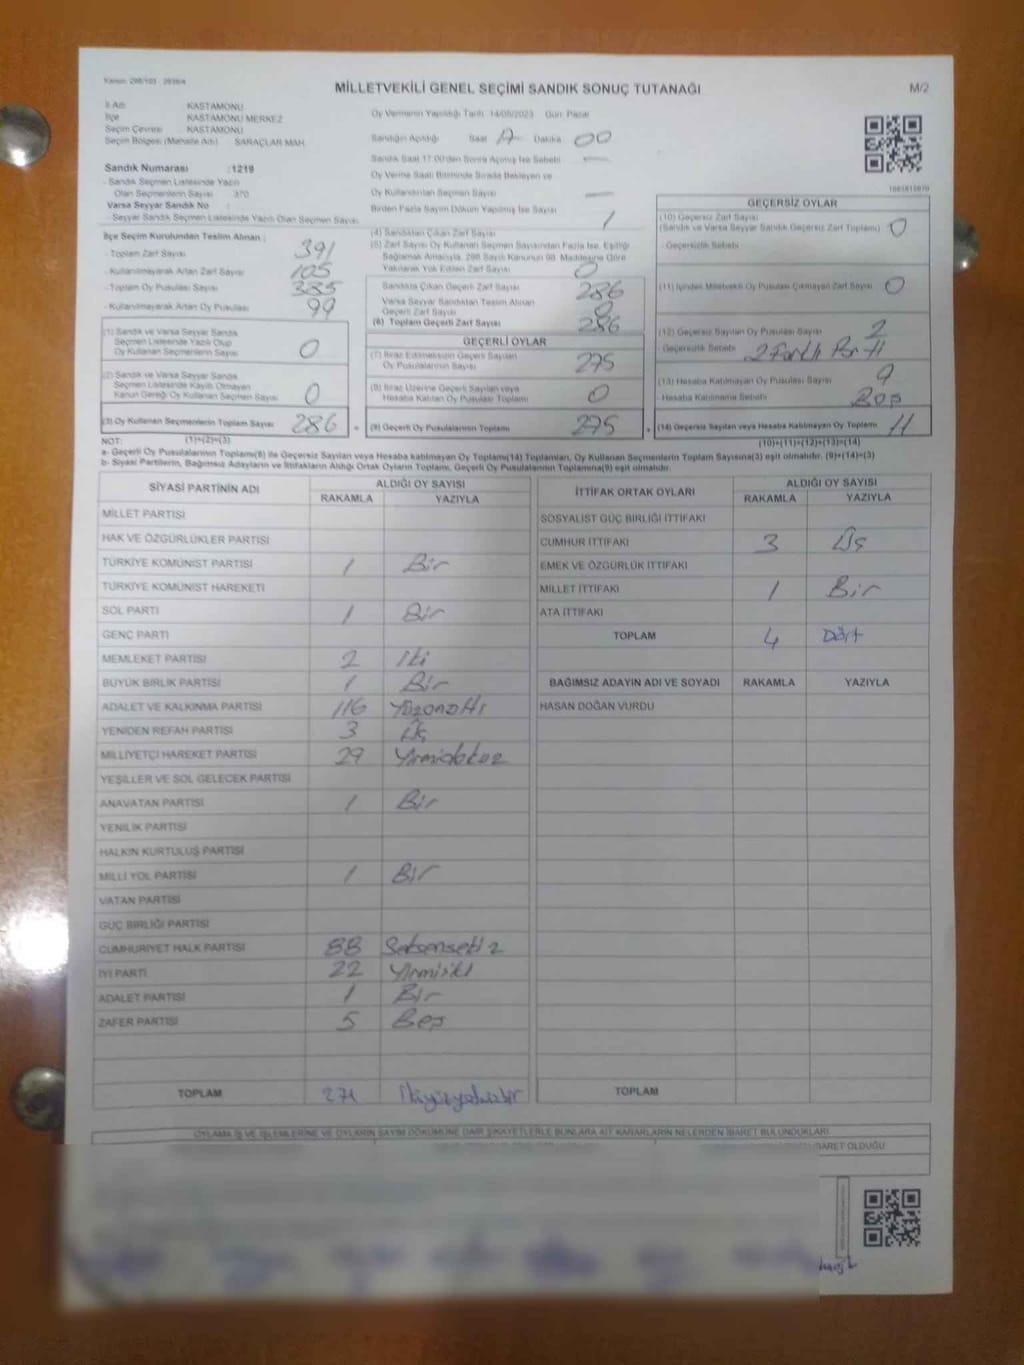 Kanun: 298/103 - 2839/4
MİLLETVEKİLİ GENEL SEÇİMİ SANDIK SONUÇ TUTANAĞI M/2
İl Adı KASTAMONU
İlçe KASTAMONU MERKEZ
Seçim Çevresi KASTAMONU
Seçim Bölgesi (Mahalle Adı) SARAÇLAR MAH.
Sandık Numarası :1219
- Sandık Seçmen Listesinde Yazılı
Olan Seçmenlerin Sayısı 370
Varsa Seyyar Sandık No :
- Seyyar Sandık Seçmen Listesinde Yazılı Olan Seçmen Sayısı
Oy Vermenin Yapıldığı Tarih 14/05/2023 Gün: Pazar
Sandığın Açıldığı Saat Dakika 00
Sandık Saat 17:00'den Sonra Açılmış İse Sebebi —
Oy Verme Saati Bitiminde Sırada Bekleyen ve
Oy Kullandırılan Seçmen Sayısı —
Birden Fazla Sayım Döküm Yapılmış İse Sayısı 1
İlçe Seçim Kurulundan Teslim Alınan :
- Toplam Zarf Sayısı 391
- Kullanılmayarak Artan Zarf Sayısı 105
- Toplam Oy Pusulası Sayısı 385
- Kullanılmayarak Artan Oy Pusulası 99
(1) Sandık ve Varsa Seyyar Sandık
Seçmen Listesinde Yazılı Olup
Oy Kullanan Seçmenlerin Sayısı 0
(2) Sandık ve Varsa Seyyar Sandık
Seçmen Listesinde Kayıtlı Olmayan
Kanun Gereği Oy Kullanan Seçmen Sayısı 0
(3) Oy Kullanan Seçmenlerin Toplam Sayısı 286
(4) Sandıktan Çıkan Zarf Sayısı
(5) Zarf Sayısı Oy Kullanan Seçmen Sayısından Fazla İse, Eşitliği
Sağlamak Amacıyla, 298 Sayılı Kanunun 98. Maddesine Göre
Yakılarak Yok Edilen Zarf Sayısı 0
Sandıkta Çıkan Geçerli Zarf Sayısı 286
Varsa Seyyar Sandıktan Teslim Alınan
Geçerli Zarf Sayısı 0
(6) Toplam Geçerli Zarf Sayısı 286
GEÇERLİ OYLAR
(7) İtiraz Edilmeksizin Geçerli Sayılan
Oy Pusulalarının Sayısı 275
(8) İtiraz Üzerine Geçerli Sayılan veya
Hesaba Katılan Oy Pusulası Toplamı 0
(9) Geçerli Oy Pusulalarının Toplamı 275
1001615070
GEÇERSİZ OYLAR
(10) Geçersiz Zarf Sayısı
(Sandık ve Varsa Seyyar Sandık Geçersiz Zarf Toplamı) 0
- Geçersizlik Sebebi
(11) İçinden Milletvekili Oy Pusulası Çıkmayan Zarf Sayısı 0
(12) Geçersiz Sayılan Oy Pusulası Sayısı 2
- Geçersizlik Sebebi 2 Farklı Parti
(13) Hesaba Katılmayan Oy Pusulası Sayısı 9
- Hesaba Katılmama Sebebi Boş
(14) Geçersiz Sayılan veya Hesaba Katılmayan Oy Toplamı 11
NOT: (1)+(2)=(3) (10)+(11)+(12)+(13)=(14)
a- Geçerli Oy Pusulalarının Toplamı(9) ile Geçersiz Sayılan veya Hesaba katılmayan Oy Toplamı(14) Toplamları, Oy Kullanan Seçmenlerin Toplam Sayısına(3) eşit olmalıdır. (9)+(14)=(3)
b- Siyasi Partilerin, Bağımsız Adayların ve İttifakların Aldığı Ortak Oyların Toplamı, Geçerli Oy Pusulalarının Toplamına(9) eşit olmalıdır.
SİYASİ PARTİNİN ADI ALDIĞI OY SAYISI
RAKAMLA YAZIYLA
MİLLET PARTİSİ
HAK VE ÖZGÜRLÜKLER PARTİSİ
TÜRKİYE KOMÜNİST PARTİSİ 1 Bir
TÜRKİYE KOMÜNİST HAREKETİ
SOL PARTİ 1 Bir
GENÇ PARTİ
MEMLEKET PARTİSİ 2 iki
BÜYÜK BİRLİK PARTİSİ 1 Bir
ADALET VE KALKINMA PARTİSİ 116 Yüzonaltı
YENİDEN REFAH PARTİSİ 3 Üç
MİLLİYETÇİ HAREKET PARTİSİ 29 Yirmidokuz
YEŞİLLER VE SOL GELECEK PARTİSİ
ANAVATAN PARTİSİ 1 Bir
YENİLİK PARTİSİ
HALKIN KURTULUŞ PARTİSİ
MİLLİ YOL PARTİSİ 1 Bir
VATAN PARTİSİ
GÜÇ BİRLİĞİ PARTİSİ
CUMHURİYET HALK PARTİSİ 88 Seksensekiz
İYİ PARTİ 22 Yirmiiki
ADALET PARTİSİ 1 Bir
ZAFER PARTİSİ 5 Beş
TOPLAM 271 ikiyüzyetmişbir
İTTİFAK ORTAK OYLARI ALDIĞI OY SAYISI
RAKAMLA YAZIYLA
SOSYALİST GÜÇ BİRLİĞİ İTTİFAKI
CUMHUR İTTİFAKI 3 Üç
EMEK VE ÖZGÜRLÜK İTTİFAKI
MİLLET İTTİFAKI 1 Bir
ATA İTTİFAKI
TOPLAM 4 Dört
BAĞIMSIZ ADAYIN ADI VE SOYADI RAKAMLA YAZIYLA
HASAN DOĞAN VURDU
TOPLAM
OYLAMA İŞ VE İŞLEMLERİNE VE OYLARIN SAYIM DÖKÜMÜNE DAİR ŞİKAYETLERLE BUNLARA AİT KARARLARIN NELERDEN İBARET BULUNDUKLARI
İBARET OLDUĞU